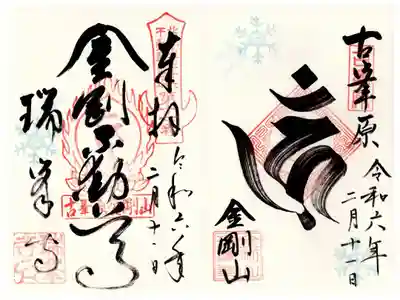 古峯原
令和六年
二月十一日
金剛山
奉拝
令和六年
二月十一日
金剛不動尊
瑞峯寺